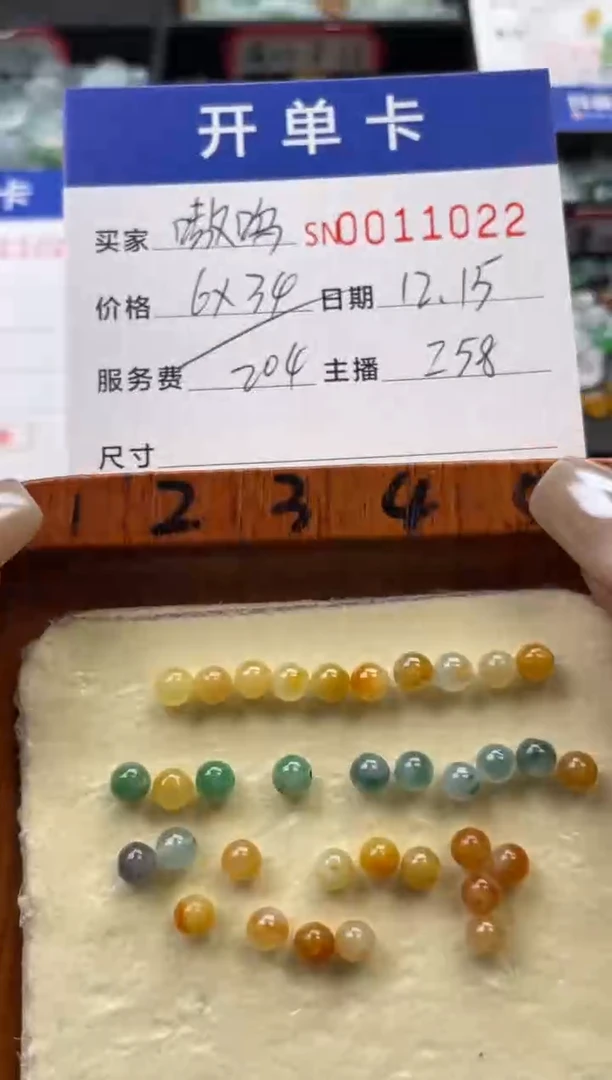 开单卡
买家 嗷呜 SN0011022
价格 6×34 日期 12.15
服务费 204 主播 258
尺寸
1 2 3 4
卡